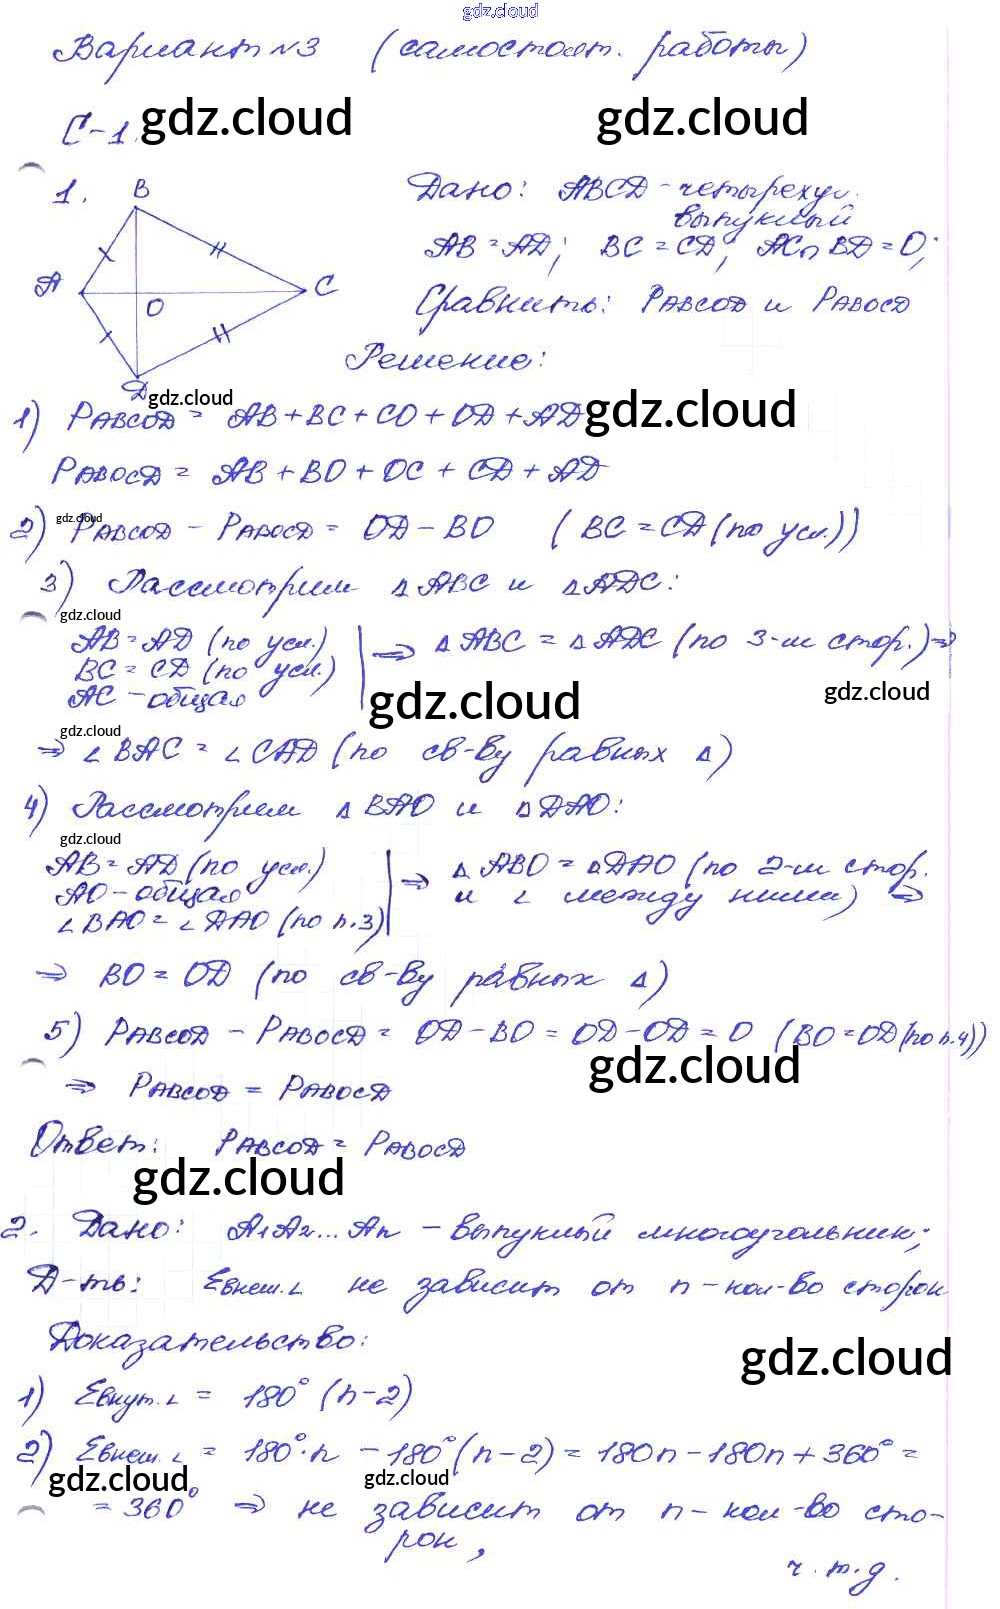 gdz.cloud
Вариант №3 (самостоят. работы)
С-1. gdz.cloud gdz.cloud
1. B A O C D
Дано: ABCD - четырехуг.
выпуклый
AB = AD; BC = CD; AC ∩ BD = O;
Сравнить: PABCOD и PABOCD
Решение:
gdz.cloud
1) PABCOD = AB + BC + CO + OD + AD gdz.cloud
PABOCD = AB + BO + OC + CD + AD
gdz.cloud
2) PABCOD - PABOCD = OD - BO (BC = CD (по усл.))
3) Рассмотрим △ABC и △ADC:
gdz.cloud
AB = AD (по усл.)
BC = CD (по усл.)
AC - общая
⇒ △ABC = △ADC (по 3-м стор.) ⇒
gdz.cloud gdz.cloud
gdz.cloud
⇒ ∠BAC = ∠CAD (по св-ву равных △)
4) Рассмотрим △BAO и △DAO:
gdz.cloud
AB = AD (по усл.)
AO - общая
∠BAO = ∠DAO (по п.3)
⇒ △ABO = △DAO (по 2-м стор.
и ∠ между ними) ⇒
⇒ BO = OD (по св-ву равных △)
5) PABCOD - PABOCD = OD - BO = OD - OD = 0 (BO = OD (по п.4))
gdz.cloud
⇒ PABCOD = PABOCD
Ответ: PABCOD = PABOCD
gdz.cloud
2. Дано: A1A2...An - выпуклый многоугольник;
Д-ть: Σвнеш.∠ не зависит от n - кол-во сторон
Доказательство:
gdz.cloud
1) Σвнут.∠ = 180° (n-2)
2) Σвнеш.∠ = 180°·n - 180°(n-2) = 180n - 180n + 360° =
gdz.cloud gdz.cloud
= 360° ⇒ не зависит от n - кол-во сто-
рон,
ч.т.д.